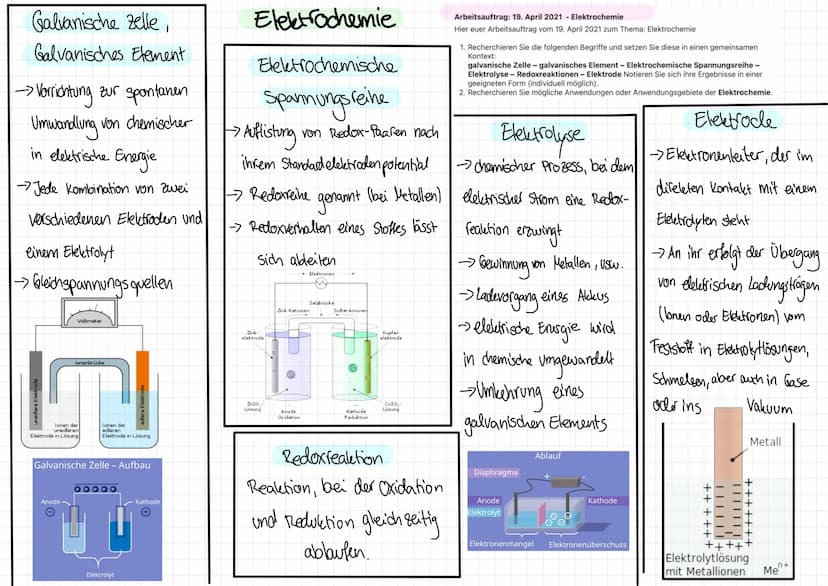 Elektrochemie
Arbeitsauftrag: 19. April 2021 - Elektrochemie
Hier euer Arbeitsauftrag vom 19. April 2021 zum Thema: Elektrochemie
1. Recherchieren Sie die folgenden Begriffe und setzen Sie diese in einen gemeinsamen
Kontext:
galvanische Zelle – galvanisches Element – Elektrochemische Spannungsreihe –
Elektrolyse – Redoxreaktionen – Elektrode Notieren Sie sich ihre Ergebnisse in einer
geeigneten Form (individuell möglich).
2. Recherchieren Sie mögliche Anwendungen oder Anwendungsgebiete der Elektrochemie.
Galvanische Zelle,
Galvanisches Element
→ Vorrichtung zur spontanen
Umwandlung von chemischer
in elektrische Energie
→ Jede Kombination von zwei
verschiedenen Elektroden und
einem Elektrolyt
→ Gleichspannungsquellen
Voltmeter
Ionenbrücke
unedlere Elektrode
edlere Elektrode
Ionen der
unedleren
Elektrode in Lösung
Ionen der
edleren
Elektrode in Lösung
Galvanische Zelle – Aufbau
Anode
Kathode
Elektrolyt
Elektrochemische
Spannungsreihe
→ Auflistung von Redox-Paaren nach
ihrem Standardelektrodenpotential
→ Redoxreihe genannt (bei Metallen)
→ Redoxverhalten eines Stoffes lässt
sich ableiten
Elektronen
Salzbrücke
Zink-Kationen
Sulfat-Anionen
Zink-
elektrode
Kupfer-
elektrode
ZnSO₄-
Lösung
Anode
Oxidation
Kathode
Reduktion
CuSO₄-
Lösung
Redoxreaktion
Reaktion, bei der Oxidation
und Reduktion gleichzeitig
ablaufen.
Elektrolyse
→ chemischer Prozess, bei dem
elektrischer Strom eine Redox-
reaktion erzwingt
→ Gewinnung von Metallen, usw.
→ Ladevorgang eines Akkus
→ elektrische Energie wird
in chemische umgewandelt
→ Umkehrung eines
galvanischen Elements
Ablauf
Diaphragma
Anode
Kathode
Elektrolyt
Elektronenmangel
Elektronenüberschuss
Elektrode
→ Elektronenleiter, der im
direkten Kontakt mit einem
Elektrolyten steht
→ An ihr erfolgt der Übergang
von elektrischen Ladungsträgen
(Ionen oder Elektronen) vom
Feststoff in Elektrolytlösungen,
Schmelzen, aber auch in Gase
oder ins Vakuum
Metall
Elektrolytlösung
mit Metallionen Meⁿ⁺